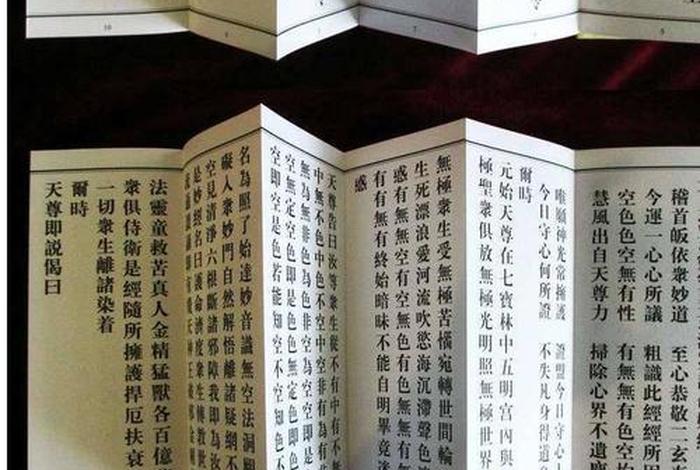 稽首皈依衆妙道 至心恭敬二玄
今運一心心所議 粗識此經經所
空色色空無有性 有無無有色空
慧風出自天尊力 掃除心界不遺
唯願神光常擁護 證盟今日守心
今日守心何所證 不失凡身得道
爾時
元始天尊在七寶林中五明宮內與
極聖衆俱放無極光明照無極世界
無極衆生受無極苦惱宛轉世間輪
生死漂浪愛河流吹慾海沉滯聲色
惑有無無空有空無色有色無無有
有有無有終始暗昧不能自明畢竟迷
惑
天尊告曰汝等衆生從不有中有不無
中無不色中色不空中空非有為有
無為無非色為色非空為空空即是
空空無定空色即是色色無定色即
空即空是色若能知空不空知色不
名為照了始達妙音識無空法洞觀
礙入衆妙門自然解悟離諸疑網不
空見清淨六根斷諸邪障我即為汝
是妙經名曰護命濟度衆生轉教世
法靈童救苦真人金精猛獸各百億
衆俱侍衛是經隨所擁護捍厄扶衰
一切衆生離諸染着
爾時
天尊即說偈曰